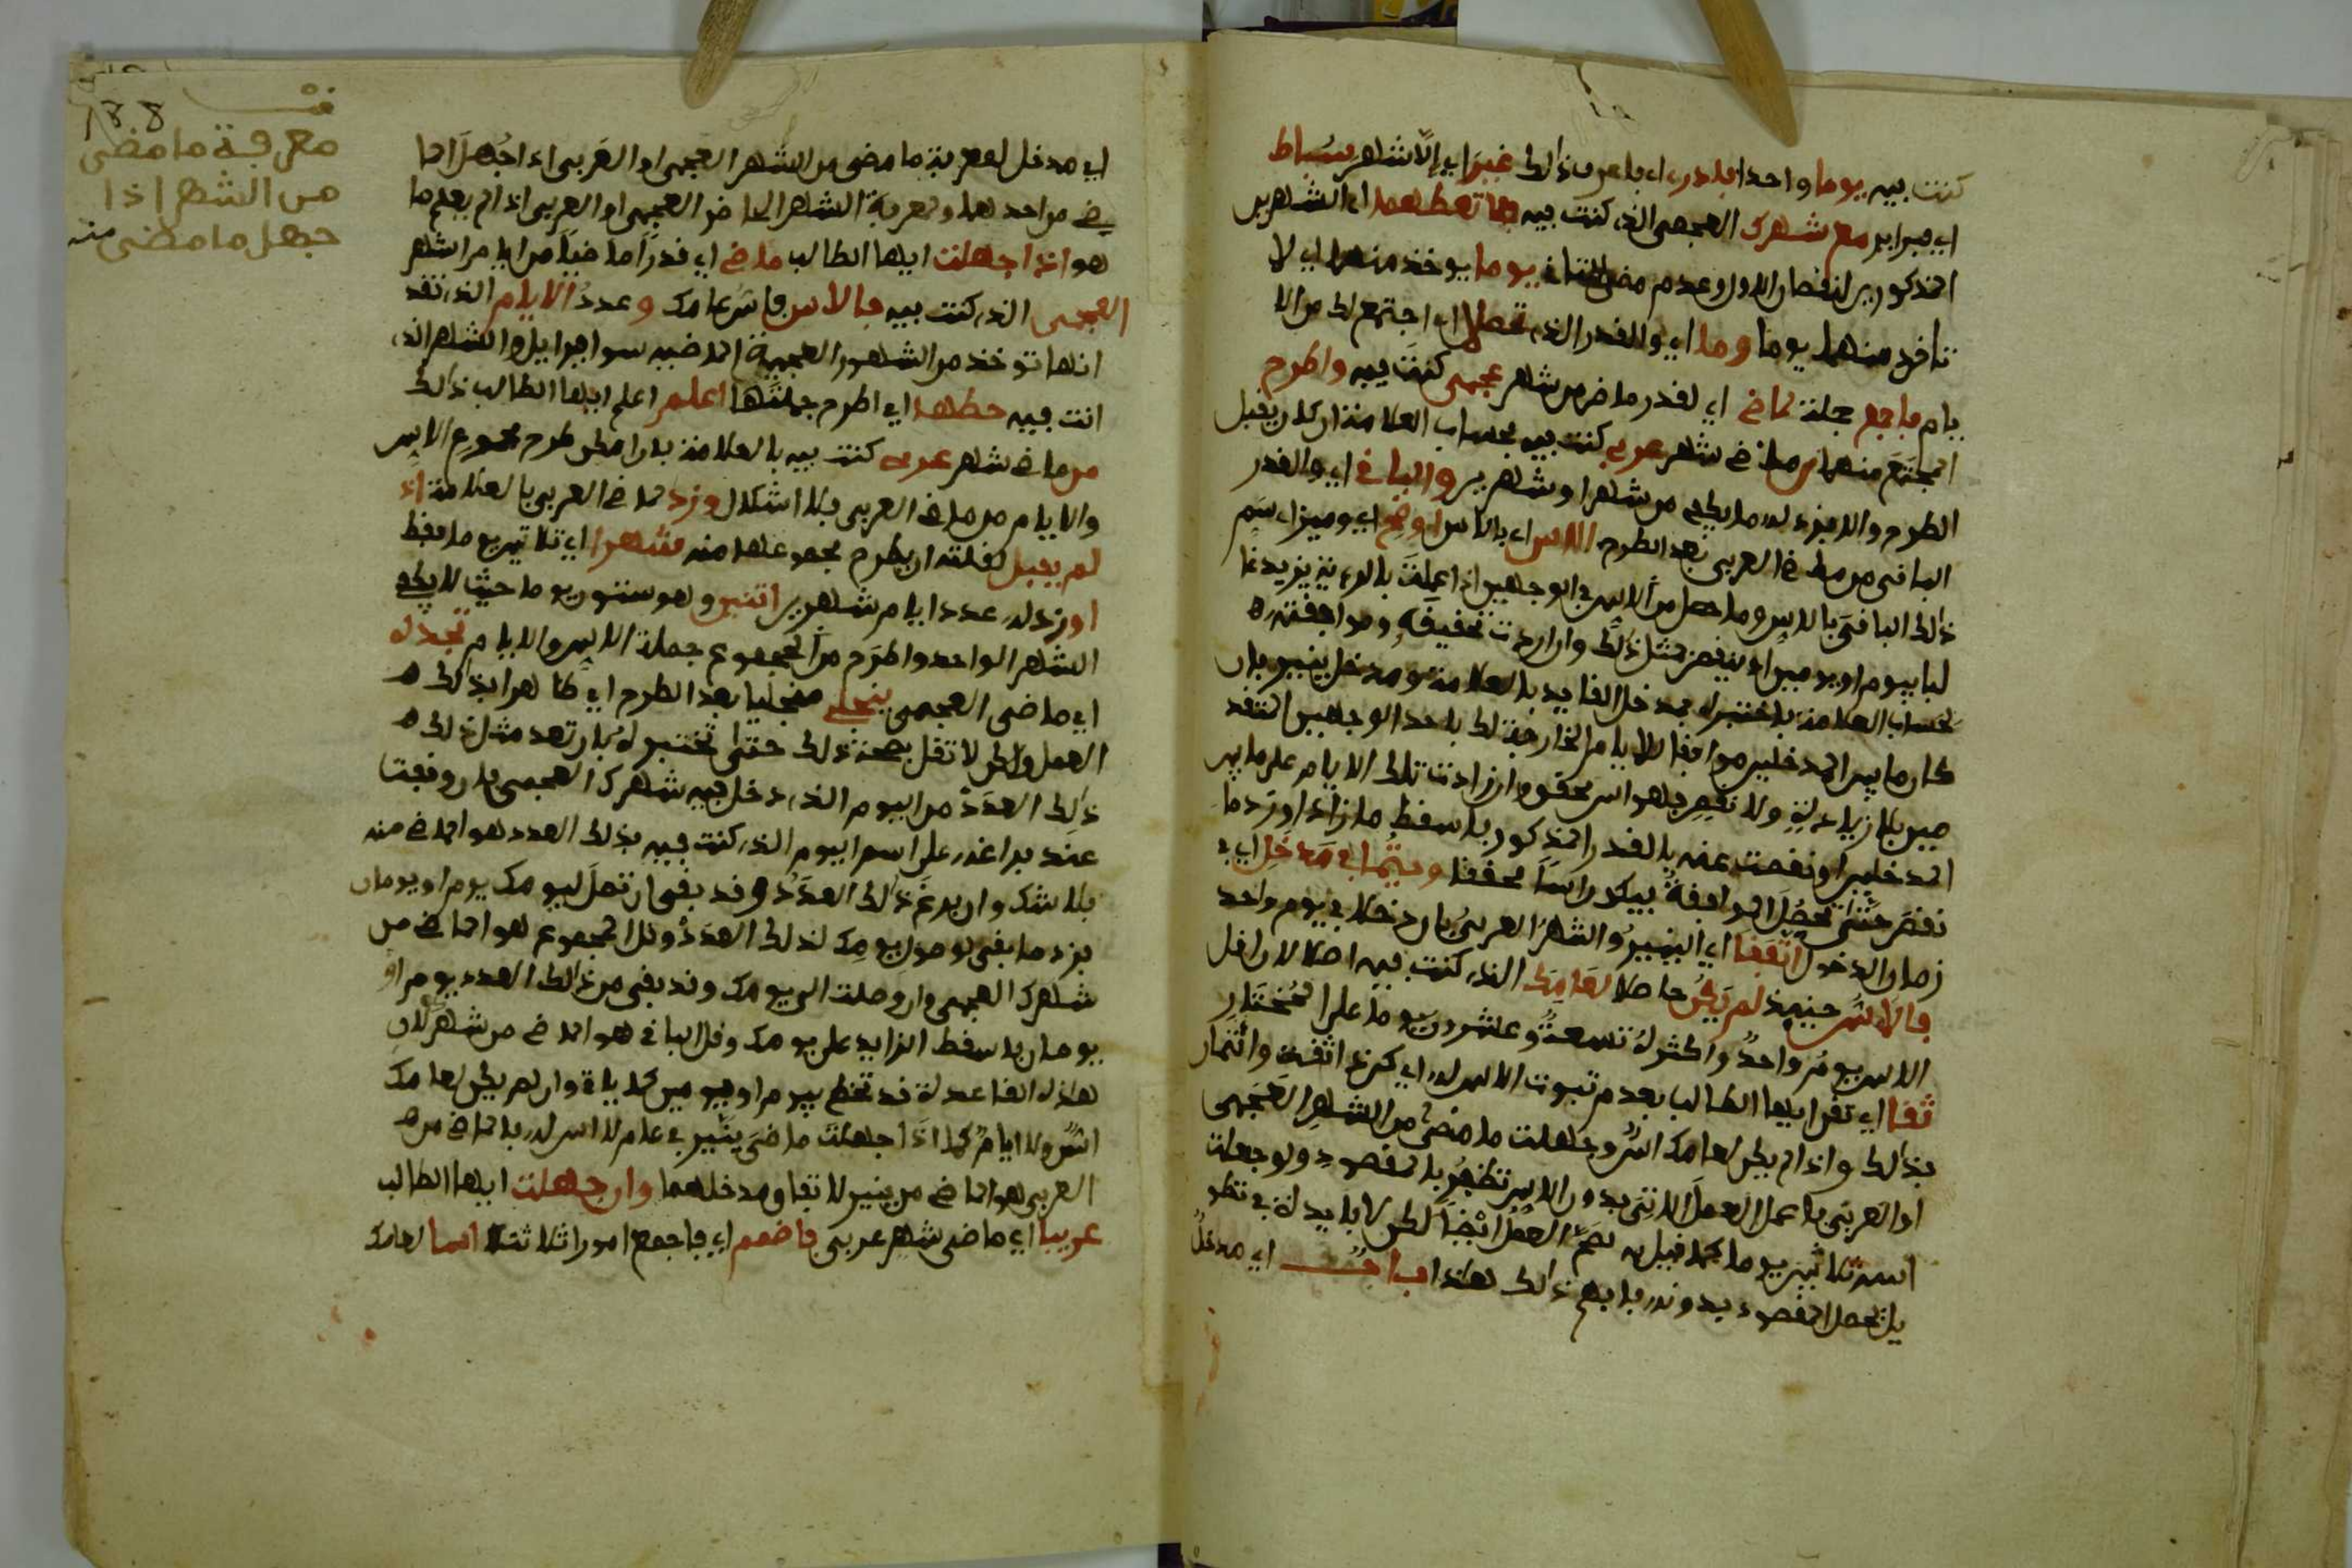 كنت فيه يوما واحدا بادر اي باعرف ذلك غير اي إلا شهر سباط
اي فبراير مع شهرك العجمي الذي كنت فيه فما تعطهما اي الشهرين
المذكورين لنقصان الاول وعدم مضي الثاني يوما يوخذ منهما اي لا
تاخذ منهما يوما وما اي والقدر الذي تحصل اي اجتمع لك من الا
يام فاجمع جملة لماض اي لقدر ماض من شهر عجمي كنت فيه واطرح
المجتمع منهما من ماض شهر عربي كنت فيه بحساب العلامة ان كان يقبل
الطرح والا فزد له ما يكفي من شهر او شهرين والباقي اي والقدر
الباقي من ماض العربي بعد الطرح الاس اي بالاس اوضح اي وميز اسم
ذلك الباقي بالاس وما حصل من الاس في الوجهين اذا عملت بالرءية يزيد غا
لبا بيوم او يومين او ينقص مثل ذلك وان اردت تحقيقه وموافقته
لحساب العلامة باختبره بمدخل القابد بالعلامة ومدخل ينير بان
كان ما بين المدخلين موافقا للايام الخارجة لك باحد الوجهين المتقد
مين بلا زيادة ولا نقص فهو اس محقق وان زادت تلك الايام على ما بين
المدخلين او نقصت عنه بالقدر المذكور باسقط ما زاد او زد ما
نقص حتى تحصل الموافقة فيكون اسا محققا وحيثما في مدخل اي في
زمان الدخول اتفقا اي الينير والشهر العربي بان دخلا في يوم واحد
فالاس حينيذ لم يكن حاصلا لعامك الذي كنت فيه اصلا لان اقل
الاس يوم واحد واكثره تسعة وعشرون يوما على المختار
ثقا اي تقرا ايها الطالب بعدم ثبوت الاس له اي كن ذا ثقة وائتمان
بذلك واذا لم يكن لعامك اس وجهلت ما مضى من الشهر العجمي
او العربي باعمل العمل الاتي بدون الاس تظفر بالمقصود ولو جعلت
اسه ثلاثين يوما كما قيل به لصح العمل ايضا لكن لا فايدة في تطو
يل تحصل المقصود بدونه بابهم ذلك هذا باب اي مدخل
188
معرفة ما مضى
من الشهر اذا
جهل ما مضى منه
اي مدخل لمعرفة ما مضى من الشهر العجمي او العربي اذا جهل الما
ضي من احدهما ومعرفة الشهر الحاضر العجمي او العربي اذا لم يعلم ما
هو اذا جهلت ايها الطالب ماضي اي قدرا ماضيا من ايام الشهر
العجمي الذي كنت فيه فالاس فاس عامك وعدد الايام الذي تقد
انها توخذ من الشهور العجمية الماضية سوا فبراير والشهر الذي
انت فيه حطها اي اطرح جملتها اعلم اعلم ايها الطالب ذلك
من ماض شهر عربي كنت فيه بالعلامة بان امكن طرح مجموع الاس
والايام من ماض العربي فلا اشكال وزد لماض العربي بالعلامة اذ
لم يقبل لقلته ان يطرح مجموعهما منه شهرا اي ثلاثين يوما فقط
او زد له عدد ايام شهرين اثنين وهو ستون يوما حيث لا يكفي
الشهر الواحد واطرح من المجموع جملة الاس والايام تجد له
اي ماضي العجمي ينجلي منجليا بعد الطرح اي ظاهرا بذلك
العمل ولكن لا تقل بصحة ذلك حتى تختبره بان تعد مثل ذلك
ذلك العدد من اليوم الذي دخل فيه شهرك العجمي بان وقفت
عند فراغه على اسم اليوم الذي كنت فيه بذلك العدد هو الماضي منه
بلا شك وان فرغ ذلك العدد وقد بقي ان تصل ليومك يوم او يومان
بزد ما بقي لوصول يومك لذلك العدد وكل المجموع هو الماضي من
شهرك العجمي وان وصلت الى يومك وقد بقي من ذلك العدد يوم او
يومان باسقط الزايد على يومك وقل الباقي هو الماضي من شهرك لان
هذه القاعدة قد تخطي بيوم او بيومين كما ياتي وان لم يكن لعامك
اس ولا ايام كما اذا جهلت ماضي ينير في عام لا اس له بالماضي من
العربي هو الماضي من ينير لاتفاق مدخلهما وان جهلت ايها الطالب
عربيا اي ماضي شهر عربي فاضمم اي فاجمع امورا ثلاثة اسا لعامك